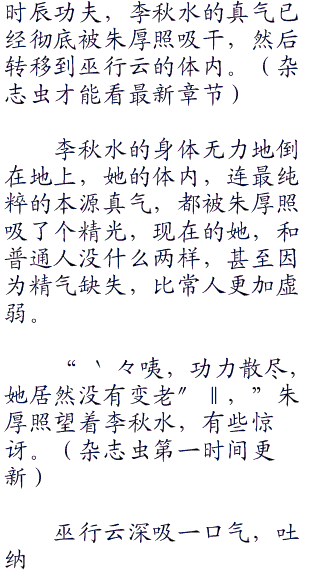 时辰功夫，李秋水的真气已
经彻底被朱厚照吸干，然后
转移到巫行云的体内。（杂
志虫才能看最新章节）
李秋水的身体无力地倒
在地上，她的体内，连最纯
粹的本源真气，都被朱厚照
吸了个精光，现在的她，和
普通人没什么两样，甚至因
为精气缺失，比常人更加虚
弱。
“｀々咦，功力散尽，
她居然没有变老″‖，”朱
厚照望着李秋水，有些惊
讶。（杂志虫第一时间更
新）
巫行云深吸一口气，吐
纳